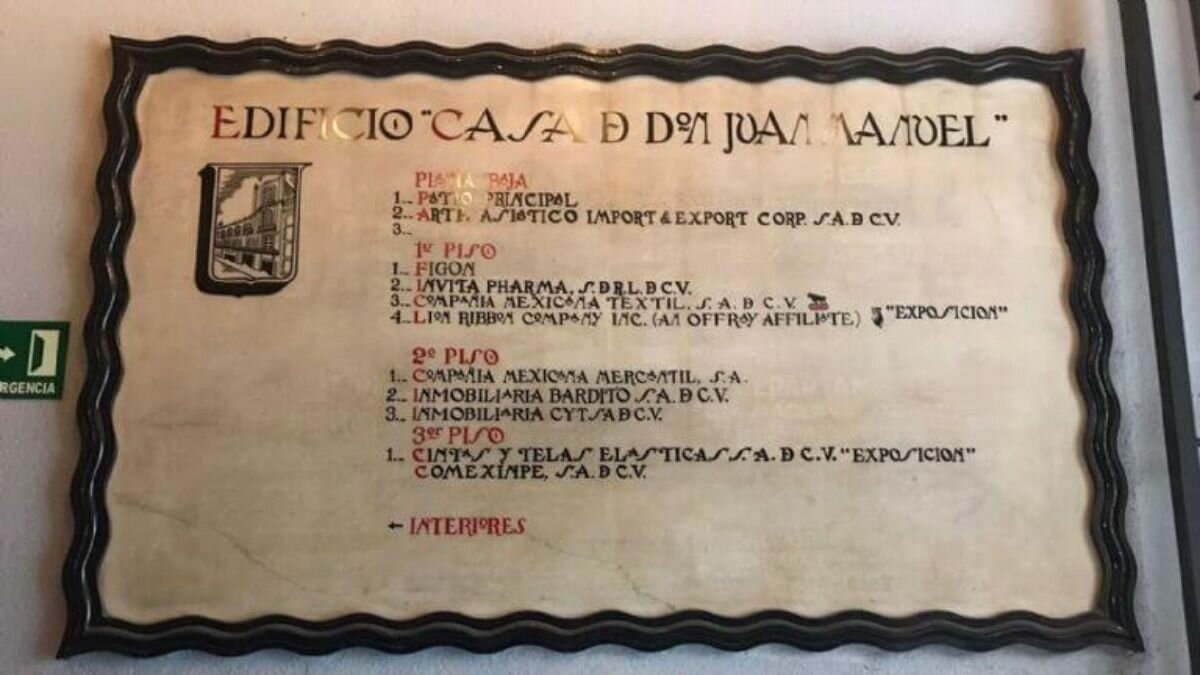 EDIFICIO "CASA D DON JUAN MANUEL"
PLANTA BAJA
1.. PATIO PRINCIPAL
2.. ARTE ASIATICO IMPORT & EXPORT CORP. S.A. D C.V.
3..
1er PISO
1.. FIGON
2.. INVITA PHARMA, S. D R.L. D C.V.
3.. COMPAÑIA MEXICANA TEXTIL, S. A. D C. V.
4.. LION RIBBON COMPANY INC. (AN OFFRAY AFFILIATE) "EXPOSICION"
2º PISO
1.. COMPAÑIA MEXICANA MERCANTIL, S.A.
2.. INMOBILIARIA BARDITO S.A. D C.V.
3.. INMOBILIARIA CYT.SA D C.V.
3er PISO
1.. CINTAS Y TELAS ELASTICAS S.A. D C.V. "EXPOSICION"
COMEXINPE, S.A. D C.V.
← INTERIORES
RGENCIA